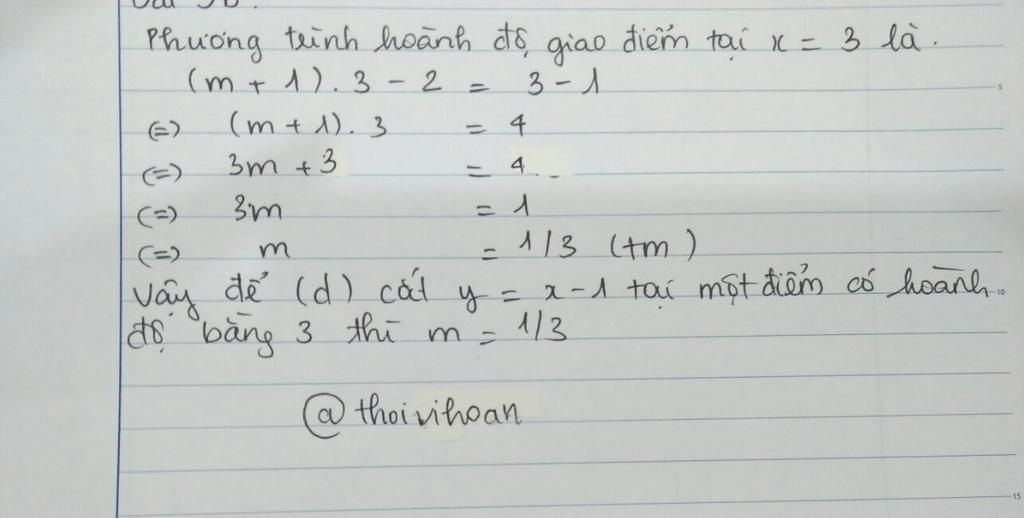 Phương trình hoành độ giao điểm tại x = 3 là.
(m + 1). 3 - 2 = 3 - 1
(=) (m + 1). 3 = 4
(=) 3m + 3 = 4
(=) 3m = 1
(=) m = 1/3 (tm)
Vậy để (d) cắt y = x - 1 tại một điểm có hoành
độ bằng 3 thì m = 1/3
@thoivihoan
5
10
15